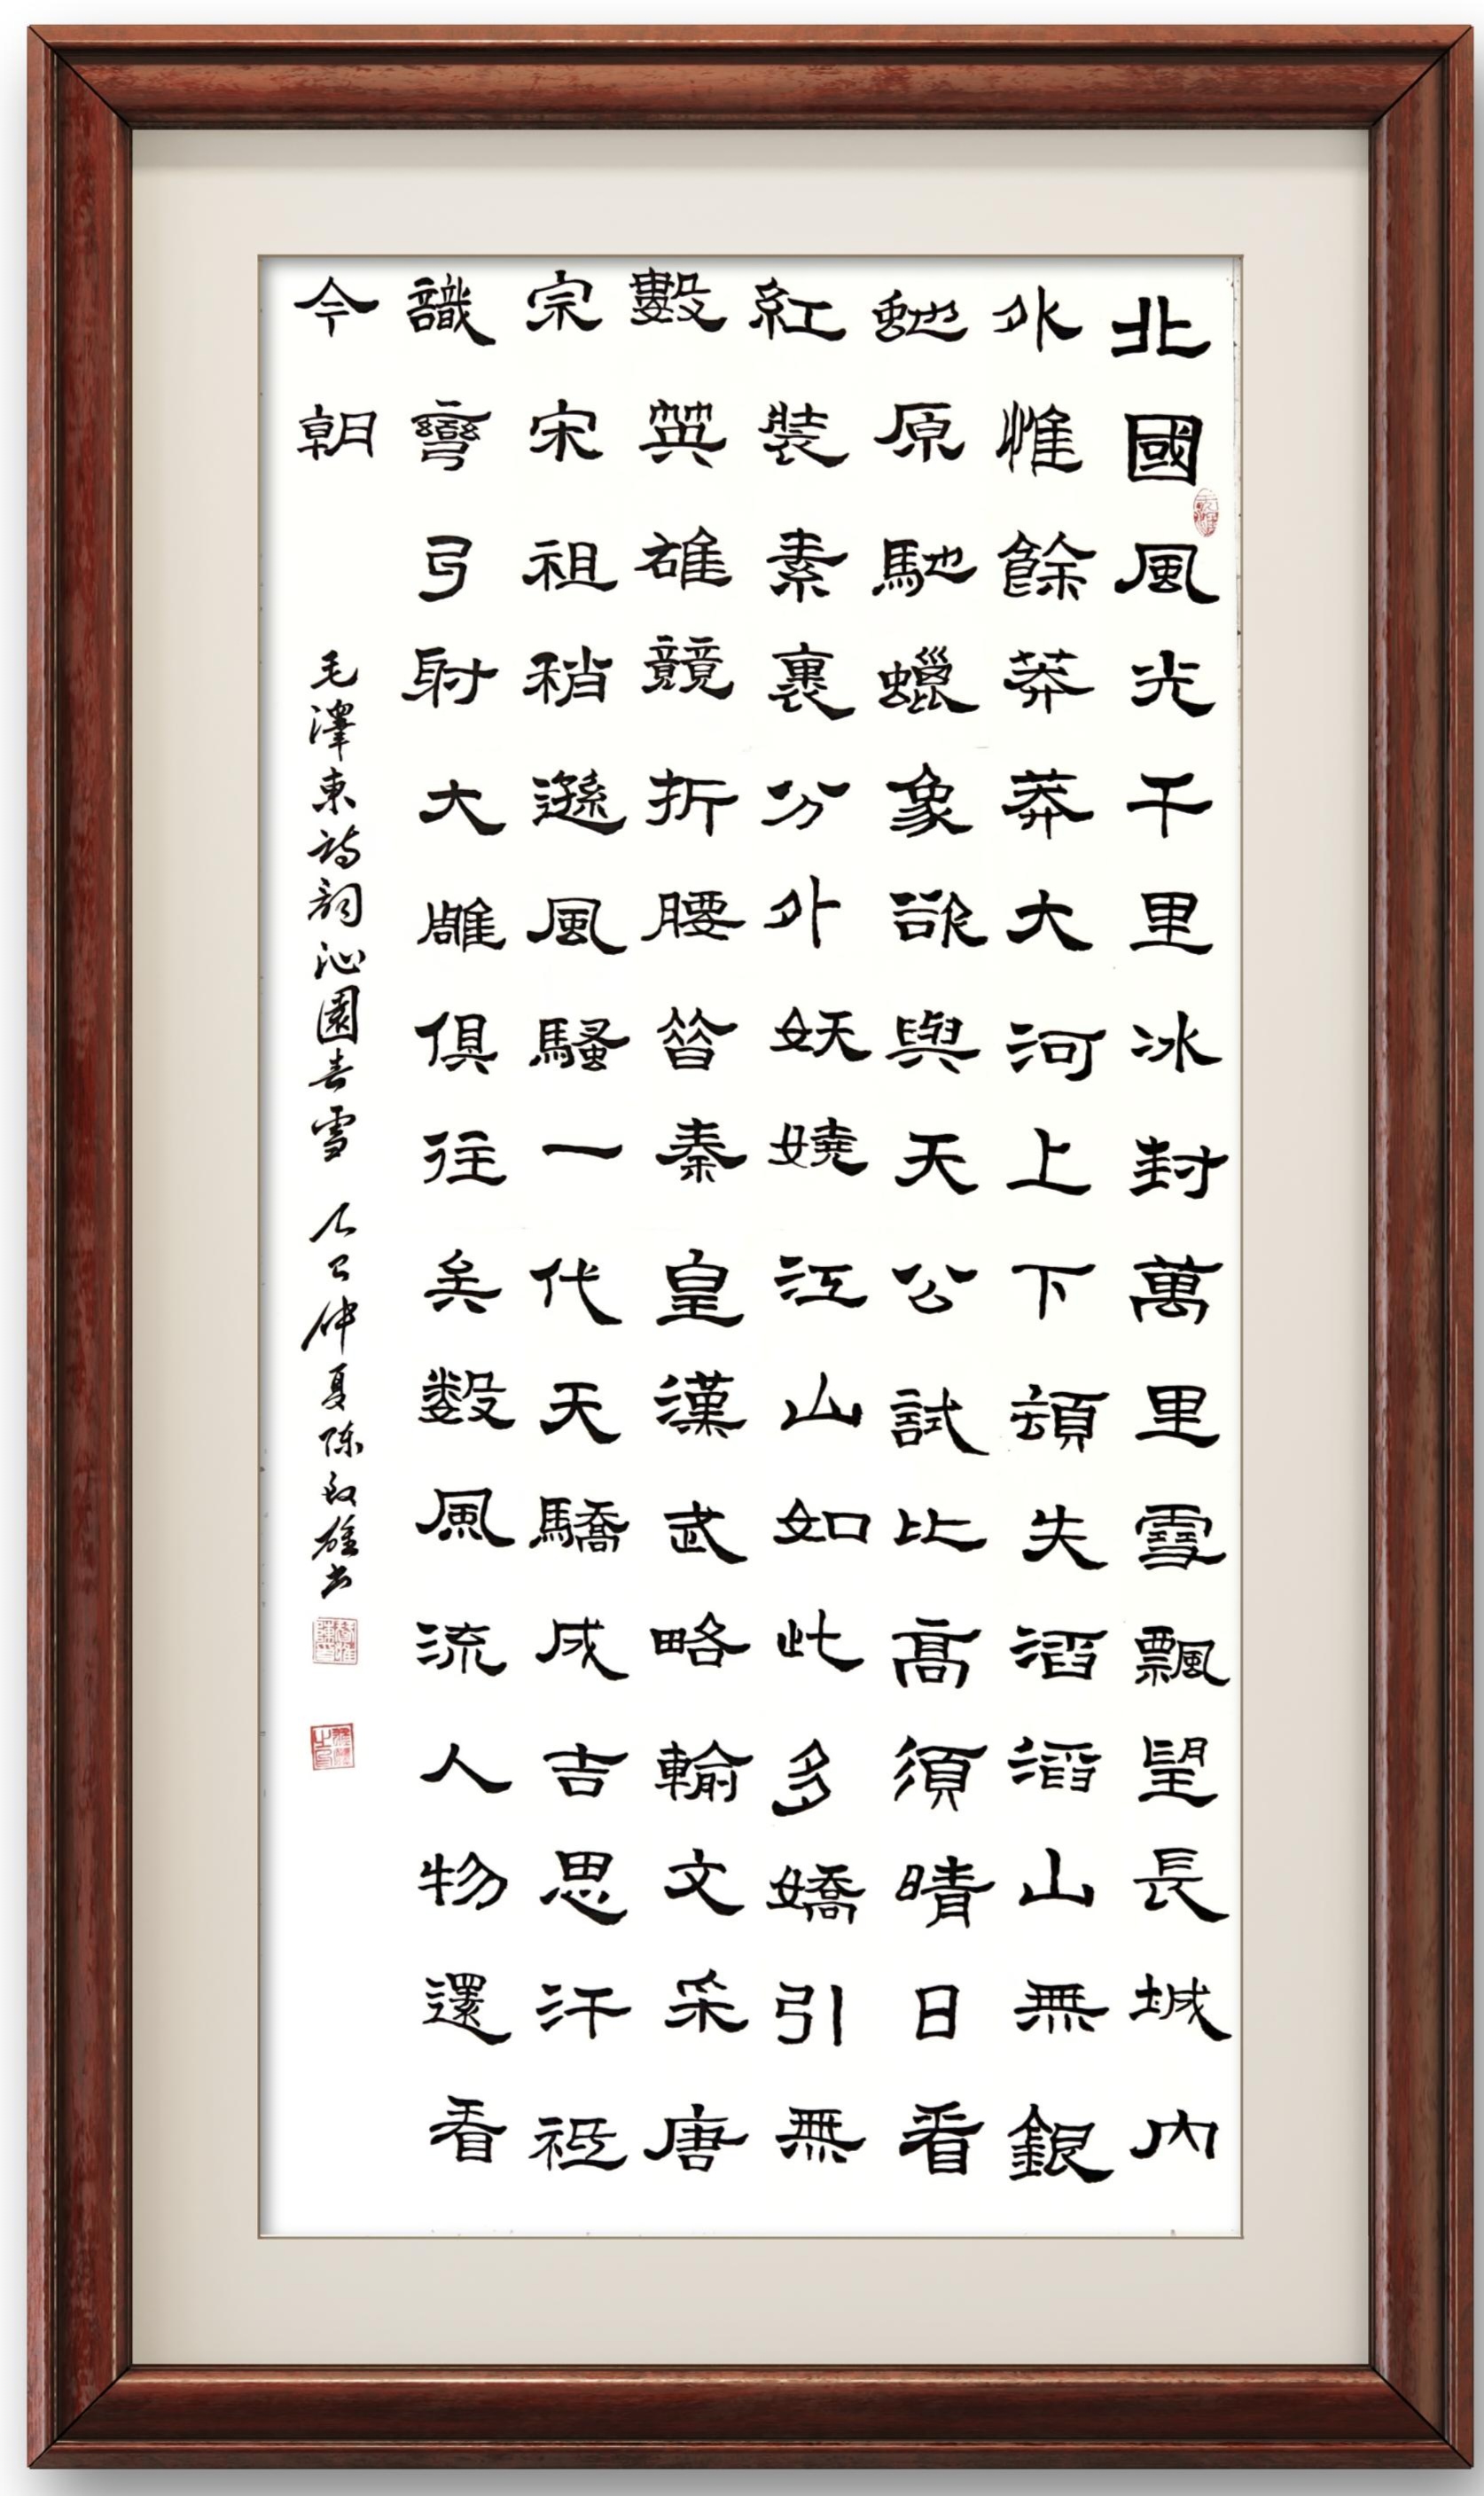 北國風光千里冰封萬里雪飄望長城內
外惟餘莽莽大河上下頓失滔滔山無銀
虵原馳蠟象欲與天公試比高須晴日看
紅裝素裹分外妖嬈江山如此多嬌引無
數英雄競折腰昔秦皇漢武略輸文采唐
宗宋祖稍遜風騷一代天驕成吉思汗祇
識彎弓射大雕俱往矣數風流人物還看
今朝
毛澤東詩詞沁園春雪 仲夏陈雄书